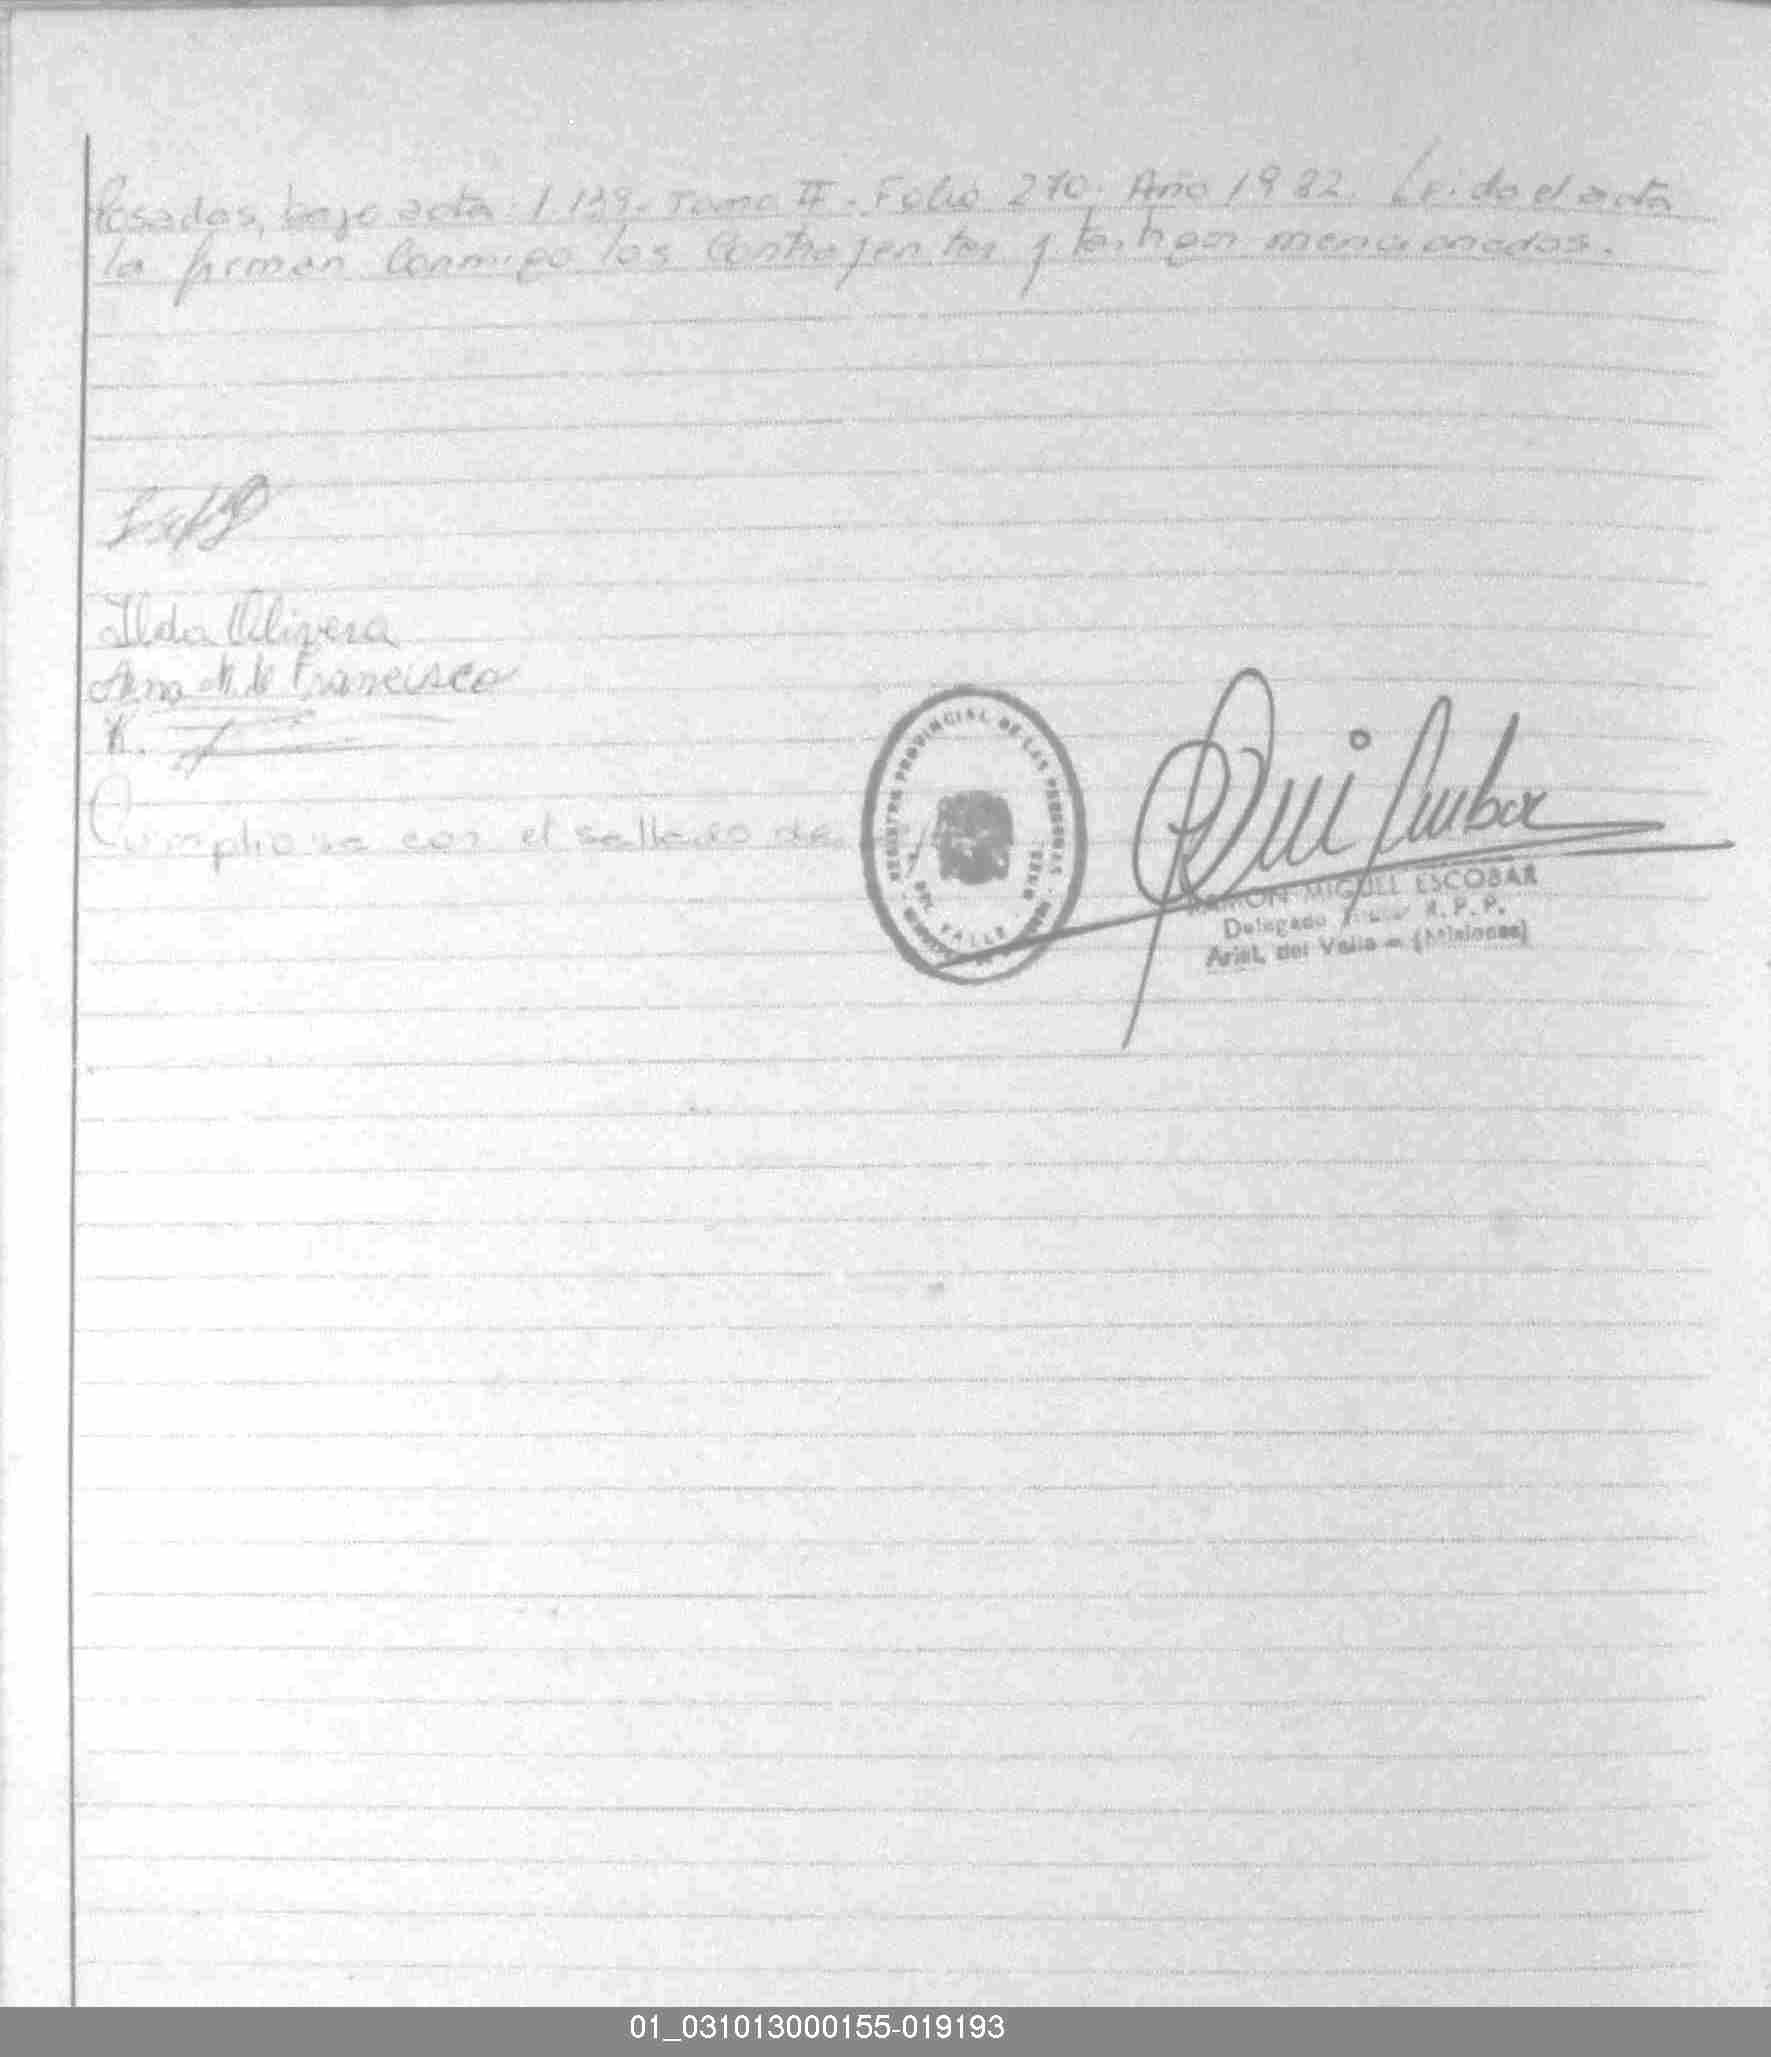 Posadas, bajo acta: 1.139. Tomo II. Folio 270. Año 1982. Leido el acta
la firman conmigo los contrayentes y testigos mencionados.
Ilda Olivera
Ana M. de Francisco
K.
Cumpliose con el sellado de
REGISTRO PROVINCIAL DE LAS PERSONAS
DEL VALLE
RAMON MIGUEL ESCOBAR
Delegado R.P.P.
Arist. del Valle - (Misiones)
01_031013000155-019193